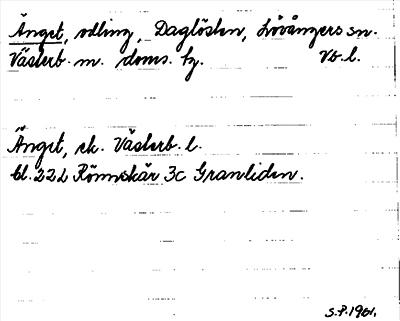 Änget, odling, Daglösten, Lövångers sn.
Västerb. m. doms. fg. Vb. l.
Änget, ek. Västerb. l.
bl. 22 L Rönnskär 3c Granliden.
S.P. 1961.